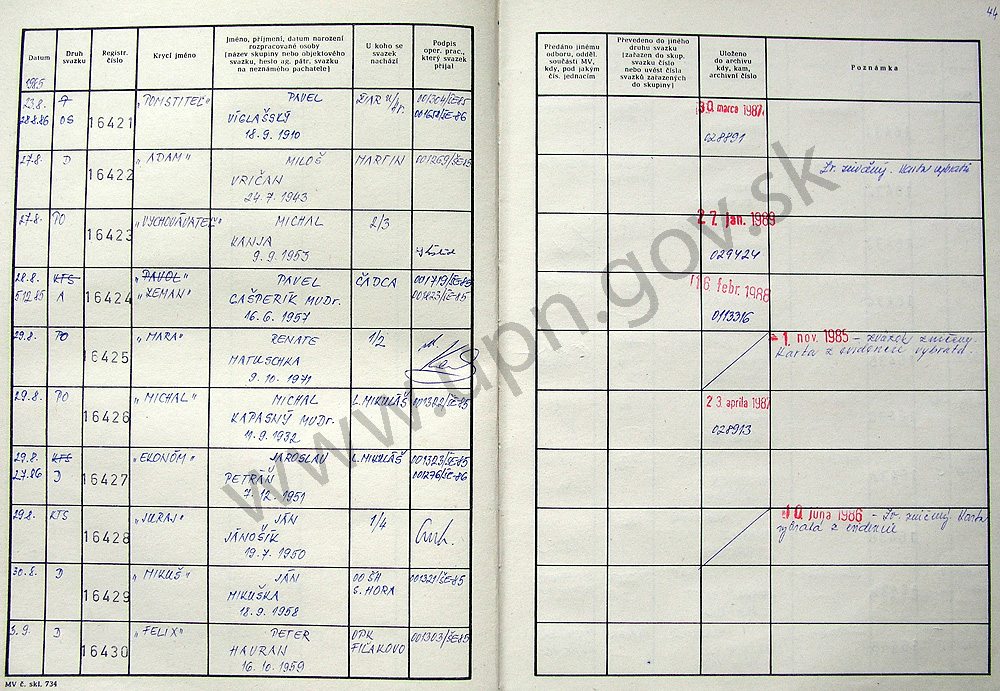 44
Datum
Druh svazku
Registr. číslo
Krycí jméno
Jméno, příjmení, datum narození
rozpracované osoby
(název skupiny nebo objektového
svazku, heslo ag. pátr. svazku
na neznámého pachatele)
U koho se
svazek
nachází
Podpis
oper. prac.,
který svazek
přijal
Předáno jinému
odboru, odděl.
součásti MV,
kdy, pod jakým
čís. jednacím
Převedeno do jiného
druhu svazku
(zařazen do skup.
svazku číslo
nebo uvést čísla
svazků zařazených
do skupiny)
Uloženo
do archivu
kdy, kam,
archivní číslo
Poznámka
1985
23.8. 16421 "POMSTITEĽ" PAVEL
28.8.86 OS VÍGLAŠSKÝ
18.9.1910
30. marca 1987
028891
27.8. D 16422 "ADAM" MILOŠ MARTIN 001269/ŠE-85
VRIČAN
24.7.1943
Zv. zničený. Karta vybratá
27.8. PO 16423 "VYCHOVÁVATEĽ" MICHAL 2/3
KANJA
9.9.1953
27. jan. 1989
029424
28.8. KTS 16424 "PAVOL" PAVEL ČADCA 001719/ŠE-85
5.12.85 A "ZEMAN" GAŠPERÍK MUDr.
16.6.1957
16. febr. 1988
0113316
29.8. PO 16425 "MARA" RENATE 1/2
MATUSCHKA
9.10.1971
1. nov. 1985 - zväzok zničený.
Karta z evidencie vybratá
29.8. PO 16426 "MICHAL" MICHAL L.MIKULÁŠ 001302/ŠE-85
KAPASNÝ MUDr.
11.9.1932
23. apríla 1987
028913
29.8. KTS 16427 "EKONÓM" JAROSLAV L.MIKULÁŠ 001323/ŠE-85
2.7.86 D PETRÁŇ 001276/ŠE-86
7.12.1951
29.8. KTS 16428 "JURAJ" JÁN 1/4
JÁNOŠÍK
19.7.1950
10. júna 1986 - Zv. zničený Karta
vybratá z evidencie
30.8. D 16429 "MIKUŠ" JÁN OO ŠH 001321/ŠE-85
MIKUŠKA S. HORA
18.9.1958
3.9. D 16430 "FELIX" PETER OPK 001303/ŠE-85
HAVRAN FIĽAKOVO
16.10.1959
MV č. skl. 734
www.upn.gov.sk